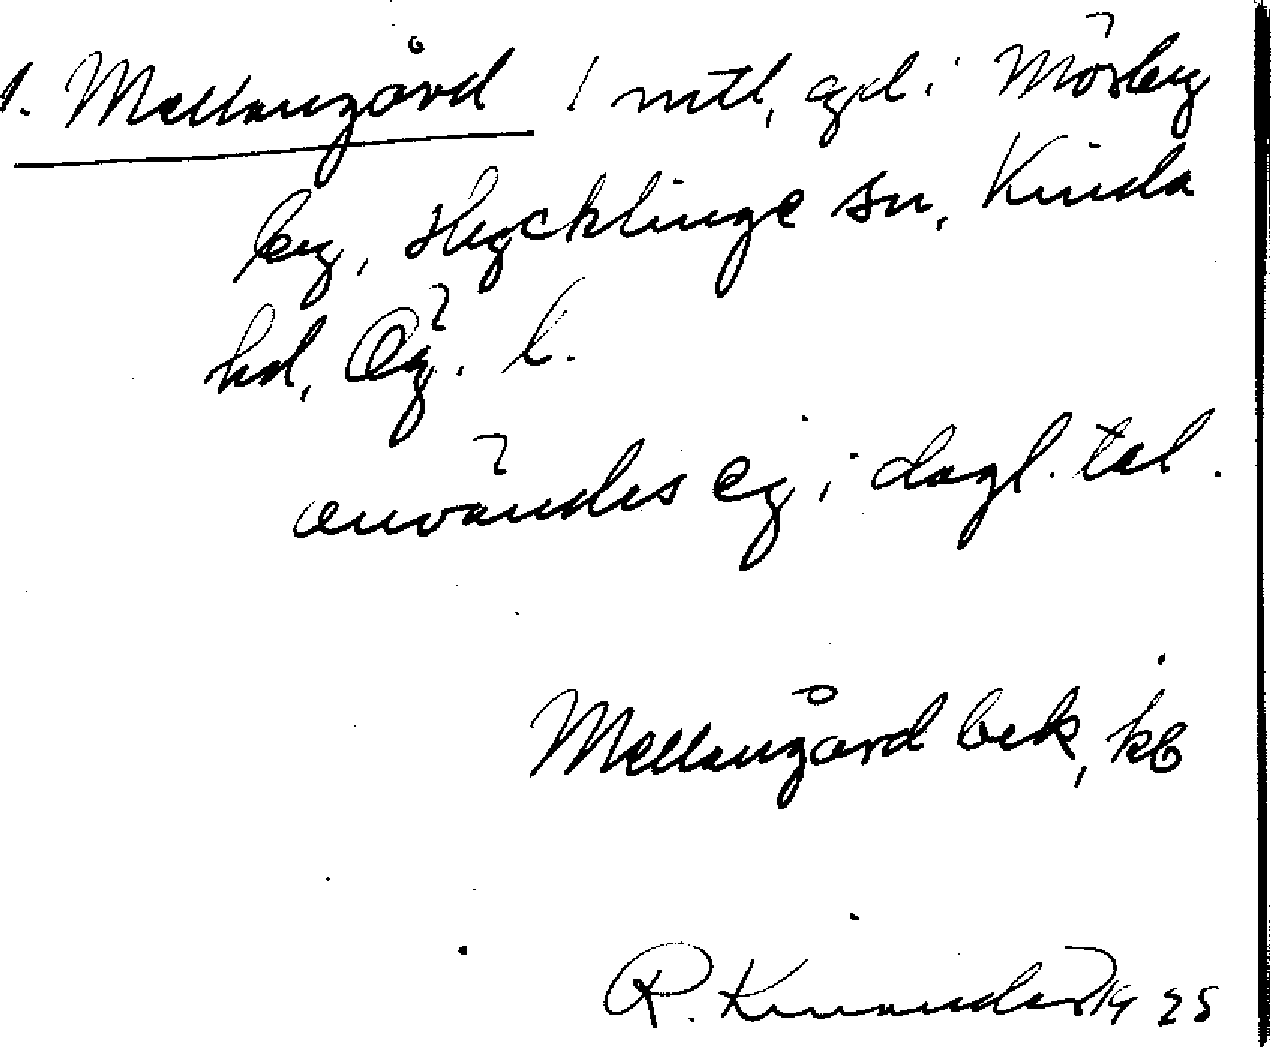 1. Mellangård 1 mtl, gd i Mösby
by, Hycklinge sn, Kinda
hd, Ög. l.
användes ej i dagl. tal.
Mellangård bek, kb
R. Kinander 1925